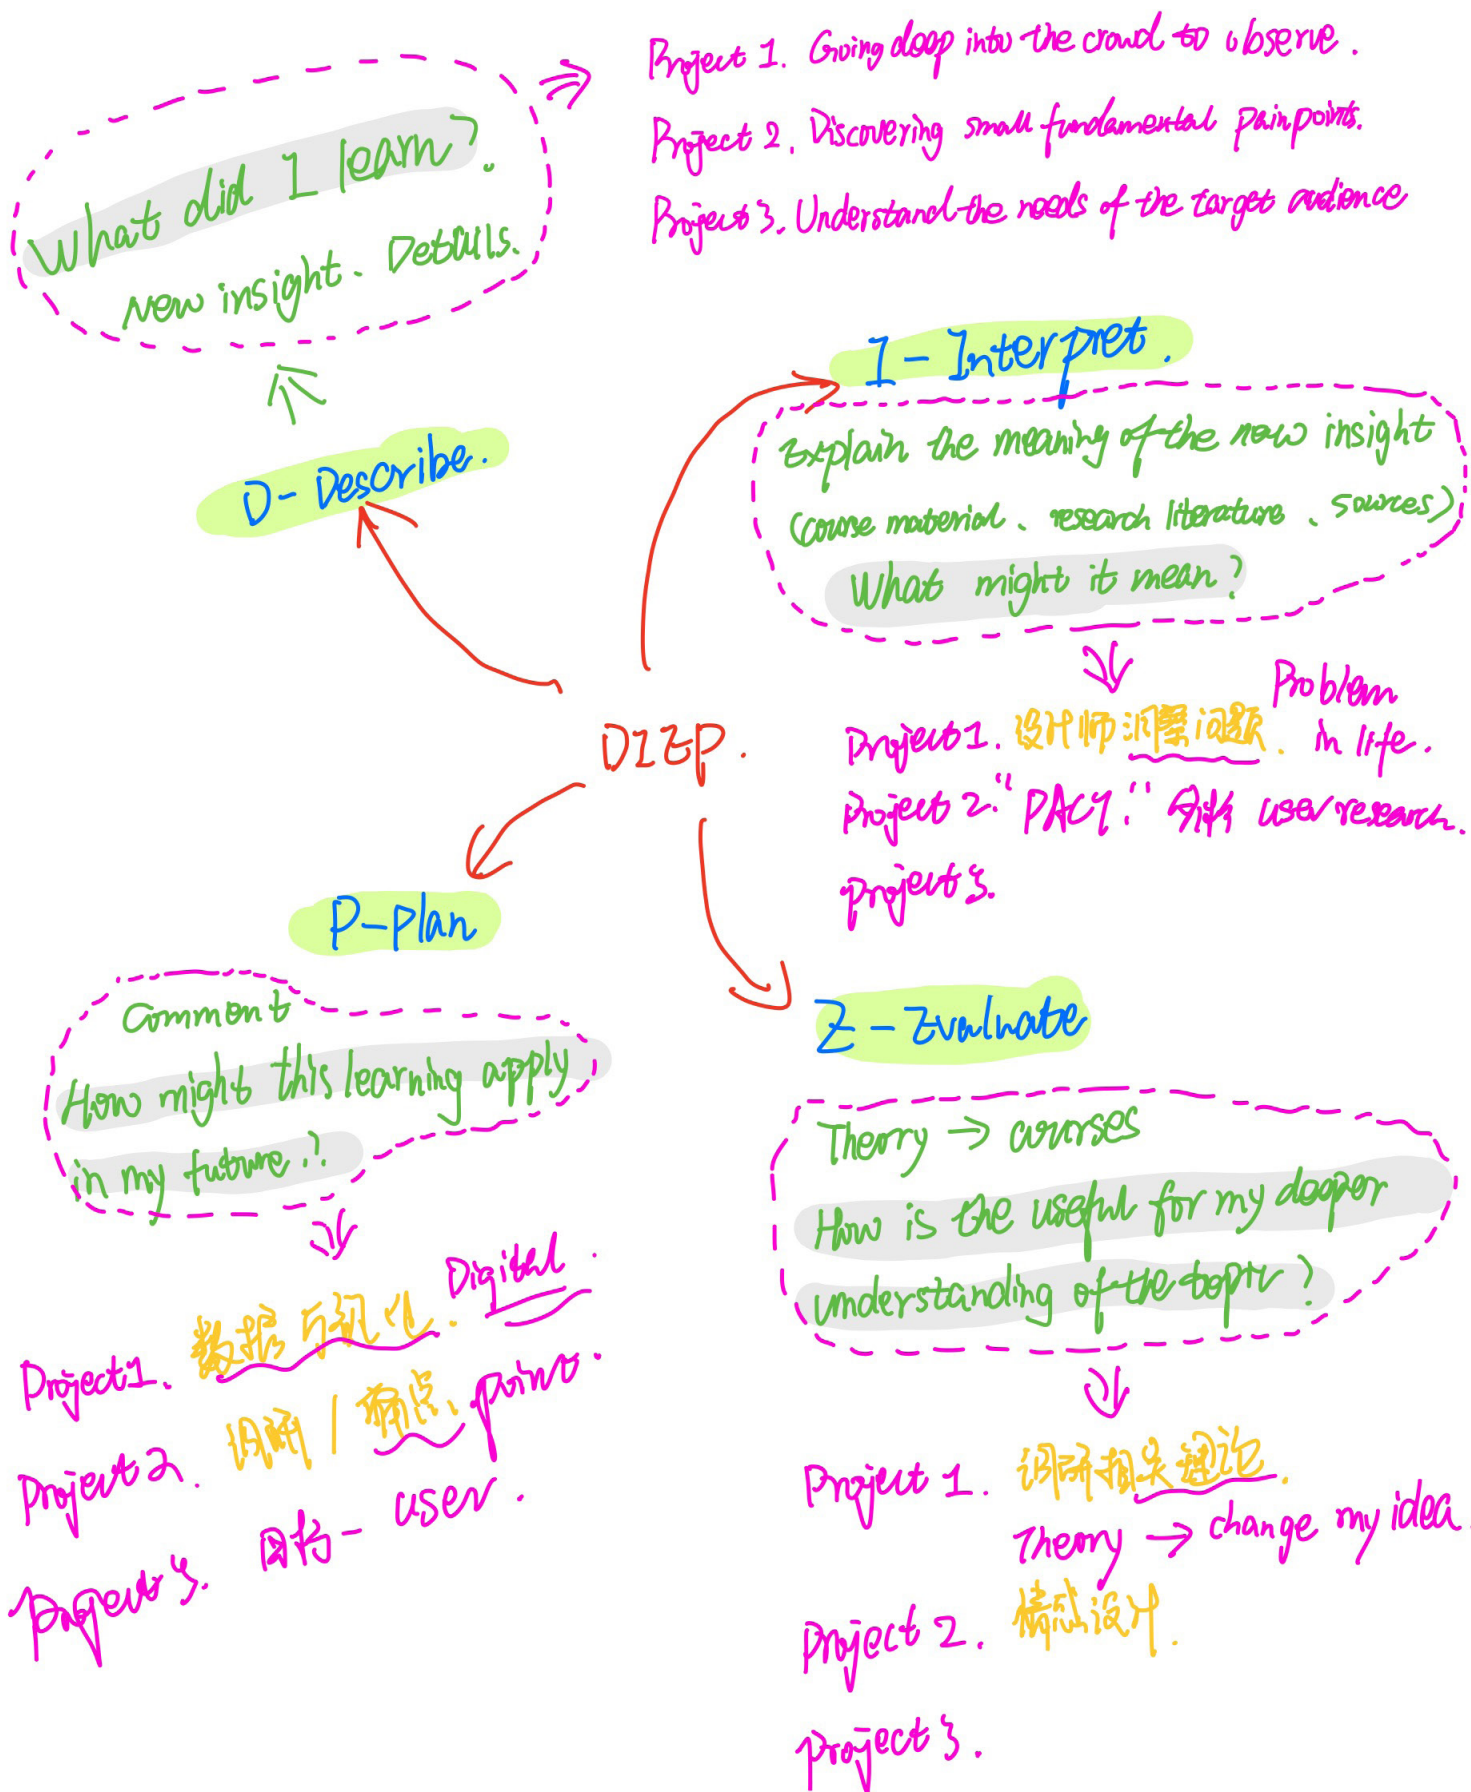 Project 1. Going deep into the crowd to observe.
Project 2. Discovering small fundamental pain points.
Project 3. Understand the needs of the target audience
What did I learn?
New insight. Details.
D - Describe.
I - Interpret.
Explain the meaning of the new insight
(course material、research literature、sources)
What might it mean?
Project 1. 设计师洞察问题. Problem in life.
Project 2. "PACT." 分析 user research.
project 3.
DIEP.
P - plan
Comment
How might this learning apply
in my future?
Project 1. 数据可视化. Digital.
Project 2. 调研 / 痛点. point.
Project 3. 目标 - user.
E - Evaluate
Theory → courses
How is the useful for my deeper
understanding of the topic?
Project 1. 调研相关理论.
Theory → change my idea.
Project 2. 情感设计.
project 3.